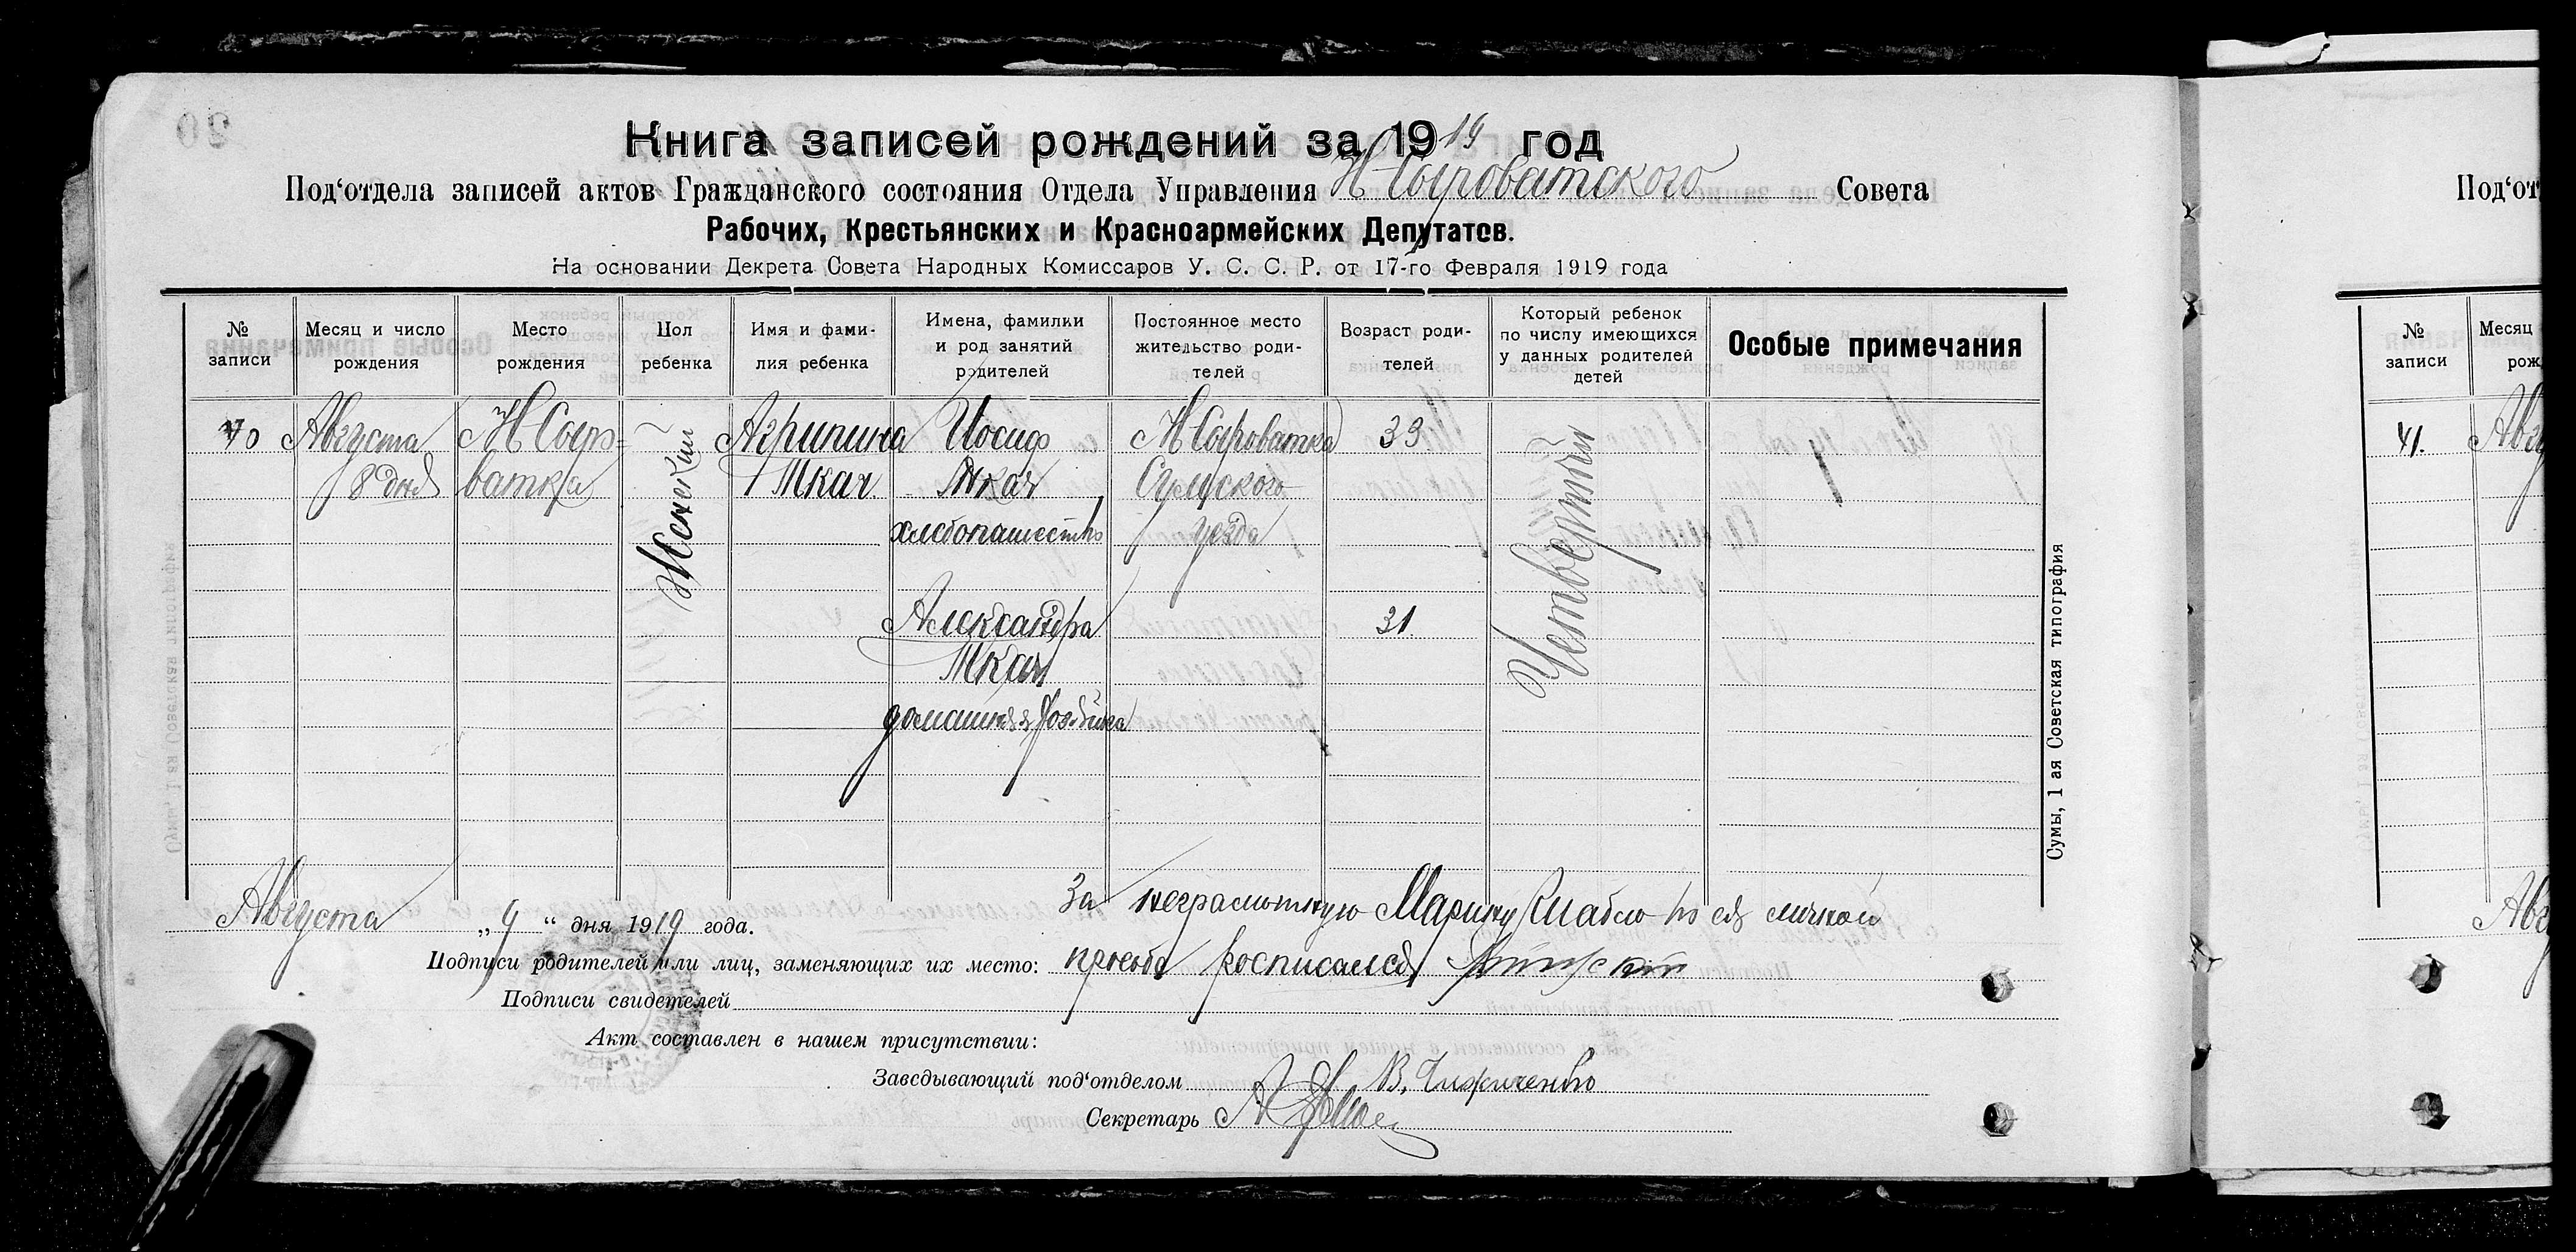 Книга записей рождений за 1919 год
Под‘отдела записей актов Гражданского состояния Отдела Управления Н Сыроватского Совета
Рабочих, Крестьянских и Красноармейских Депутатов.
На основании Декрета Совета Народных Комиссаров У. С. С. Р. от 17-го Февраля 1919 года
№ записи
Месяц и число рождения
Место рождения
Пол ребенка
Имя и фами-
лия ребенка
Имена, фамилии
и род занятий
родителей
Постоянное место
жительство роди-
телей
Возраст роди-
телей
Который ребенок
по числу имеющихся
у данных родителей
детей
Особые примечания
40
Августа
8 дня
Н Сыро=
ватка
Женский
Агрипина
Ткач
Иосиф
Ткач
хлебопашество
Н Сыроватка
Сумского
уезда
33
Четвертый
Александра
Ткач
31.
Сумы, 1 ая Советская типография
Августа „9“ дня 1919 года.
За неграмотную Марину по ея личной
Подписи родителей или лиц, заменяющих их место: просьбе росписался
Подписи свидетелей
Акт составлен в нашем присутствии:
Заведывающий под‘отделом В.
Секретарь
Под‘от
№
записи
Месяц
рож
41.
Авгу
Авг